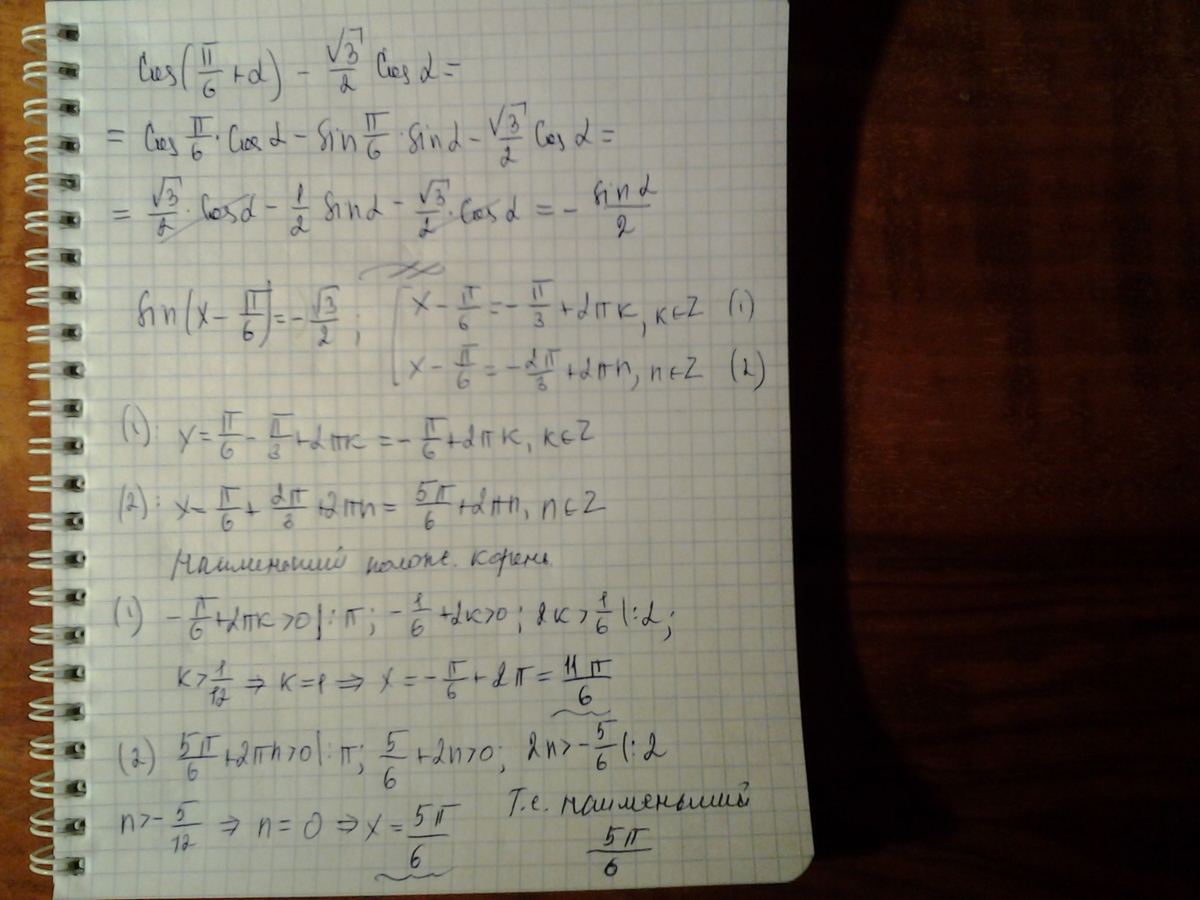 Cos(π/6 + α) − √3/2 Cos α =
= Cos π/6 · Cos α − Sin π/6 · Sin α − √3/2 Cos α =
= √3/2 · Cos α − 1/2 Sin α − √3/2 · Cos α = − Sin α/2
Sin(x − π/6) = − √3/2 ; [ x − π/6 = − π/3 + 2πk, k∈Z (1)
x − π/6 = − 2π/3 + 2πn, n∈Z (2)
(1): x = π/6 − π/3 + 2πk = − π/6 + 2πk, k∈Z
(2): x = π/6 + 2π/3 + 2πn = 5π/6 + 2πn, n∈Z
Наименьший полож. корень
(1) − π/6 + 2πk > 0 |:π ; − 1/6 + 2k > 0 ; 2k > 1/6 |:2 ;
k > 1/12 ⇒ k = 1 ⇒ x = − π/6 + 2π = 11π/6
(2) 5π/6 + 2πn > 0 |:π ; 5/6 + 2n > 0 ; 2n > − 5/6 |:2
n > − 5/12 ⇒ n = 0 ⇒ x = 5π/6 Т.е. наименьший
5π/6